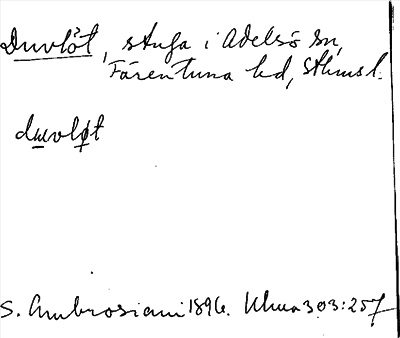 Duvlöt, stuga i Adelsö sn,
Färentuna hd, Sthms l.
duvløt
S. Ambrosiani 1896. Uhua 303:257